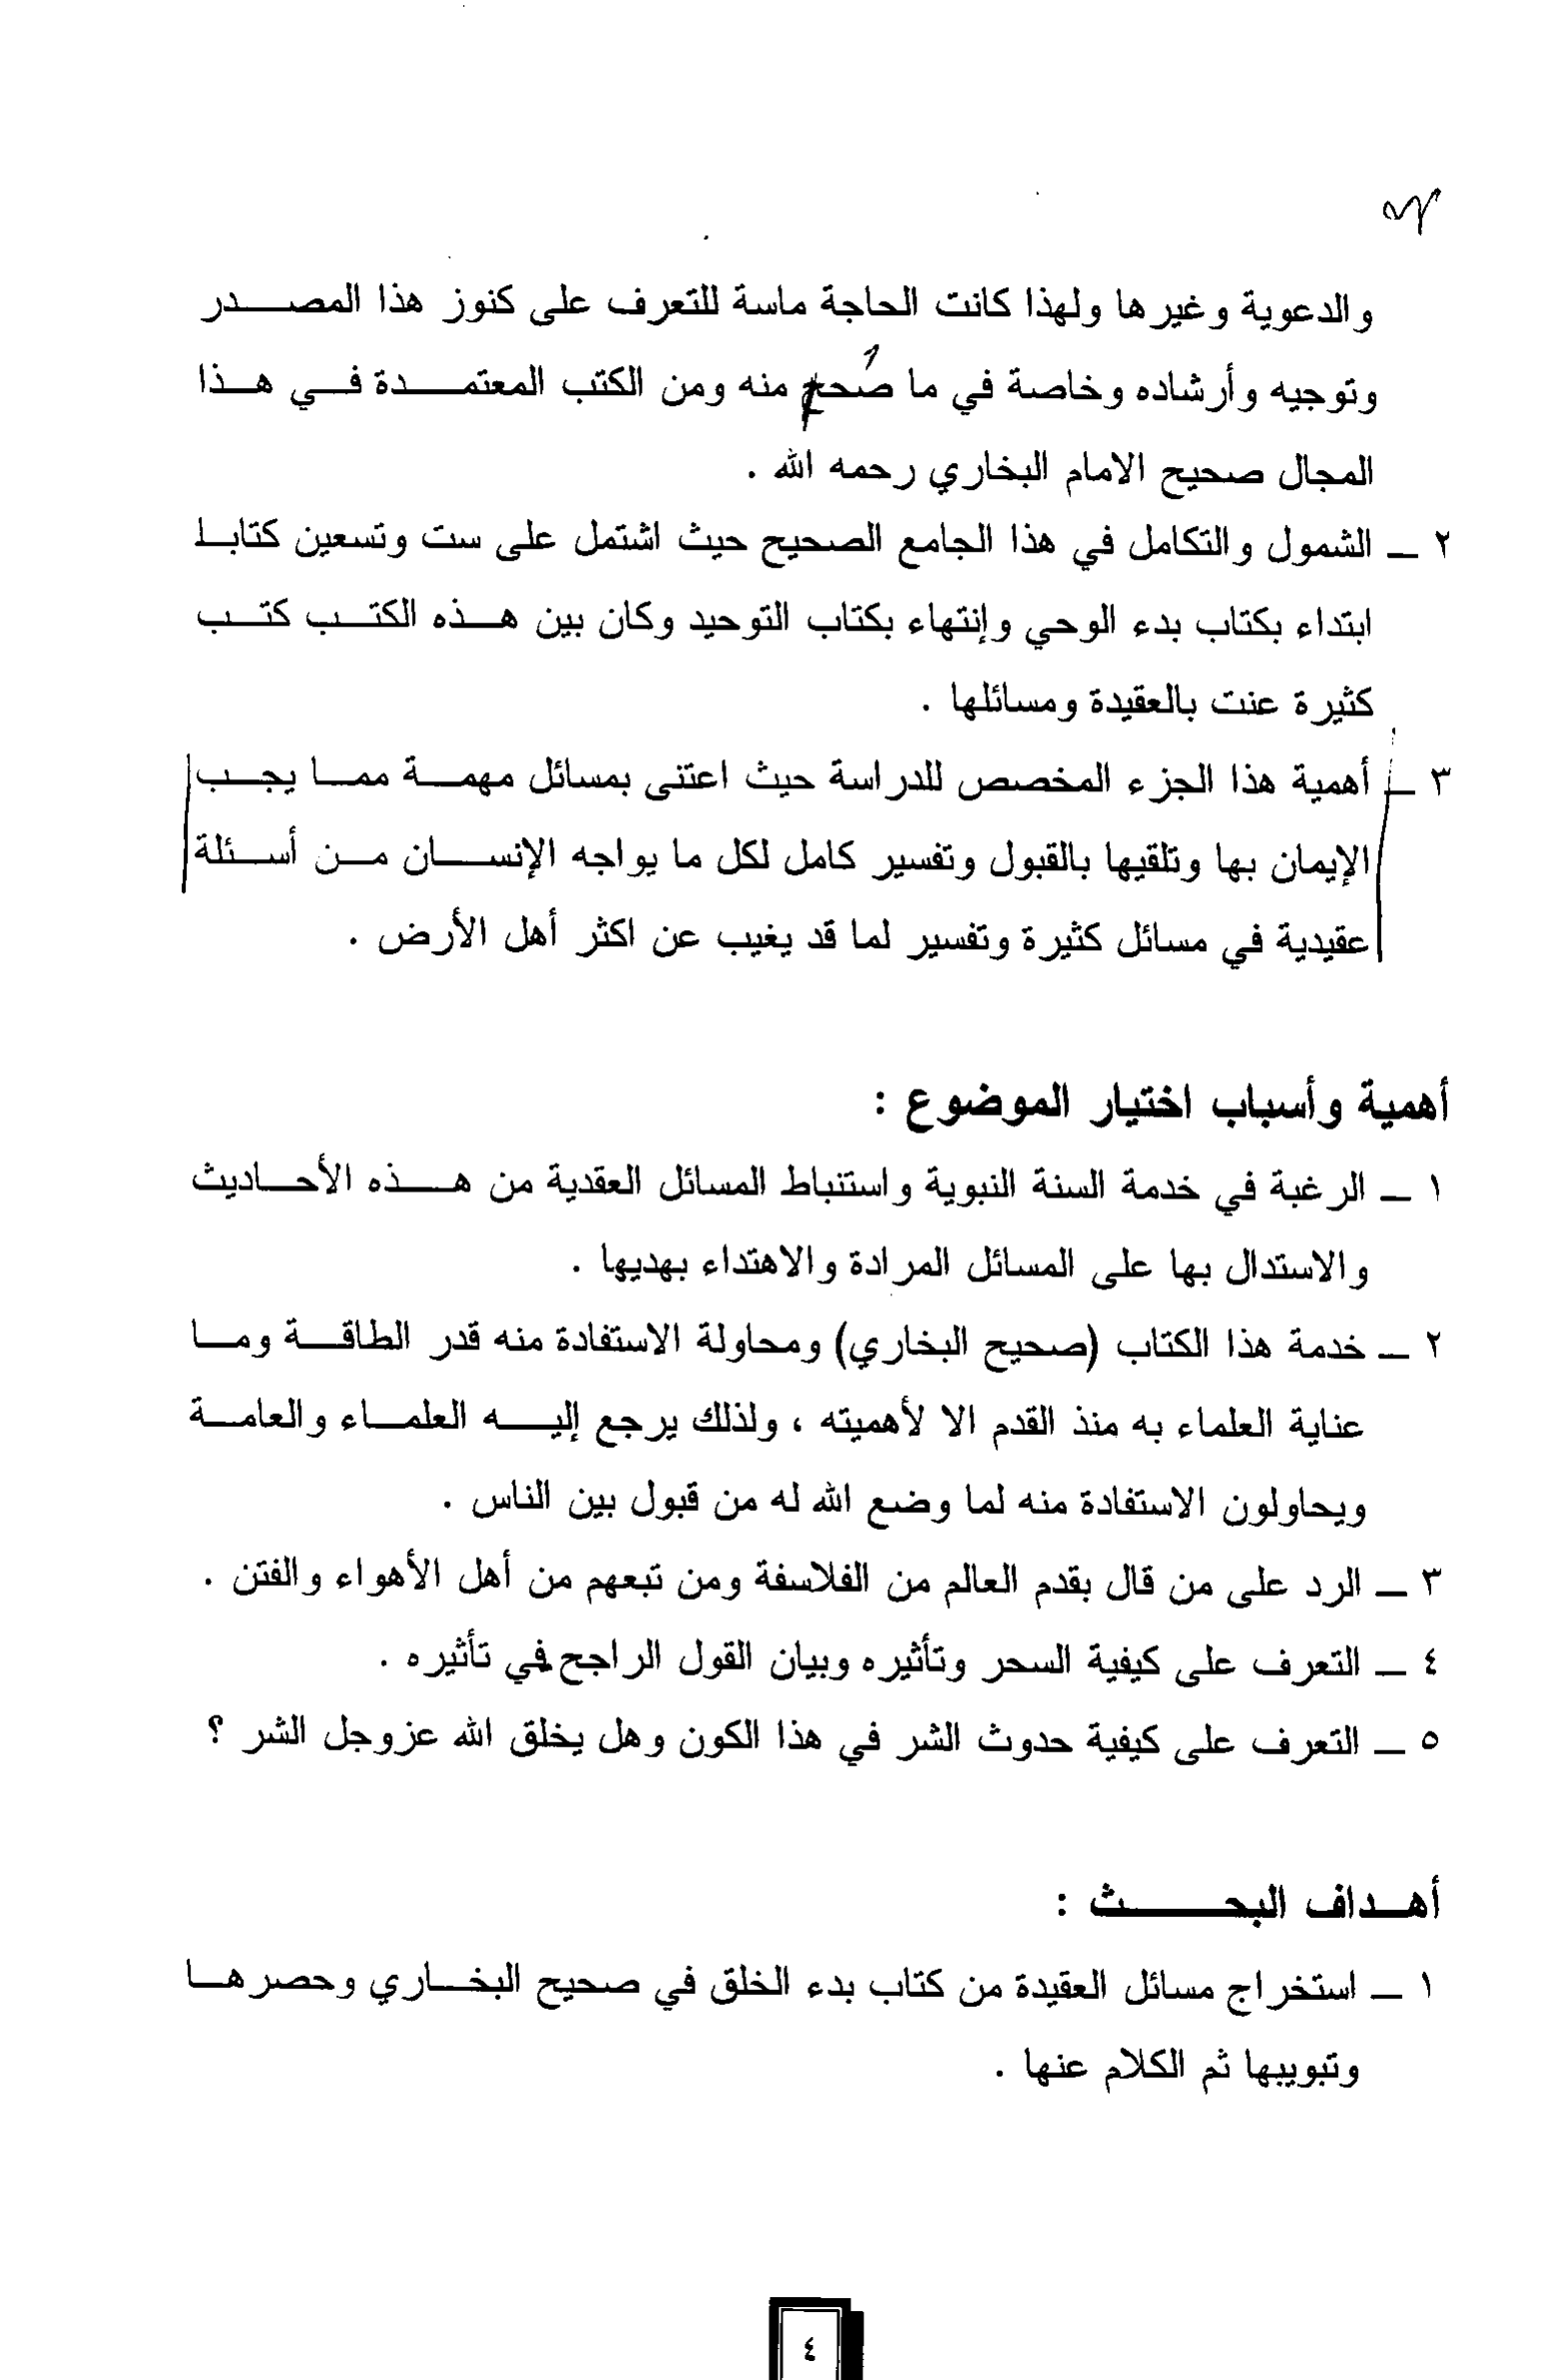 والدعوية وغيرها ولهذا كانت الحاجة ماسة للتعرف على كنوز هذا المصدر
وتوجيه وأرشاده وخاصة في ما صحح منه ومن الكتب المعتمدة في هذا
المجال صحيح الامام البخاري رحمه الله .
٢ – الشمول والتكامل في هذا الجامع الصحيح حيث اشتمل على ست وتسعين كتابا
ابتداء بكتاب بدء الوحي وإنتهاء بكتاب التوحيد وكان بين هذه الكتب كتب
كثيرة عنت بالعقيدة ومسائلها .
٣ – أهمية هذا الجزء المخصص للدراسة حيث اعتنى بمسائل مهمة مما يجب
الإيمان بها وتلقيها بالقبول وتفسير كامل لكل ما يواجه الإنسان من أسئلة
عقيدية في مسائل كثيرة وتفسير لما قد يغيب عن اكثر أهل الأرض .
أهمية وأسباب اختيار الموضوع :
١ – الرغبة في خدمة السنة النبوية واستنباط المسائل العقدية من هذه الأحاديث
والاستدال بها على المسائل المرادة والاهتداء بهديها .
٢ – خدمة هذا الكتاب (صحيح البخاري) ومحاولة الاستفادة منه قدر الطاقة وما
عناية العلماء به منذ القدم الا لأهميته ، ولذلك يرجع إليه العلماء والعامة
ويحاولون الاستفادة منه لما وضع الله له من قبول بين الناس .
٣ – الرد على من قال بقدم العالم من الفلاسفة ومن تبعهم من أهل الأهواء والفتن .
٤ – التعرف على كيفية السحر وتأثيره وبيان القول الراجح في تأثيره .
٥ – التعرف على كيفية حدوث الشر في هذا الكون وهل يخلق الله عزوجل الشر ؟
أهداف البحث :
١ – استخراج مسائل العقيدة من كتاب بدء الخلق في صحيح البخاري وحصرها
وتبويبها ثم الكلام عنها .
٤